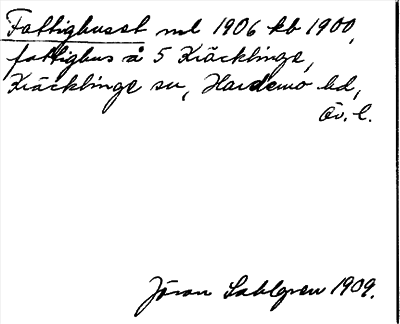 Fattighuset ml 1906 kb 1900,
fattighus å 5 Kräcklinge,
Kräcklinge sn, Hardemo hd,
Ör. l.
Jöran Sahlgren 1909.